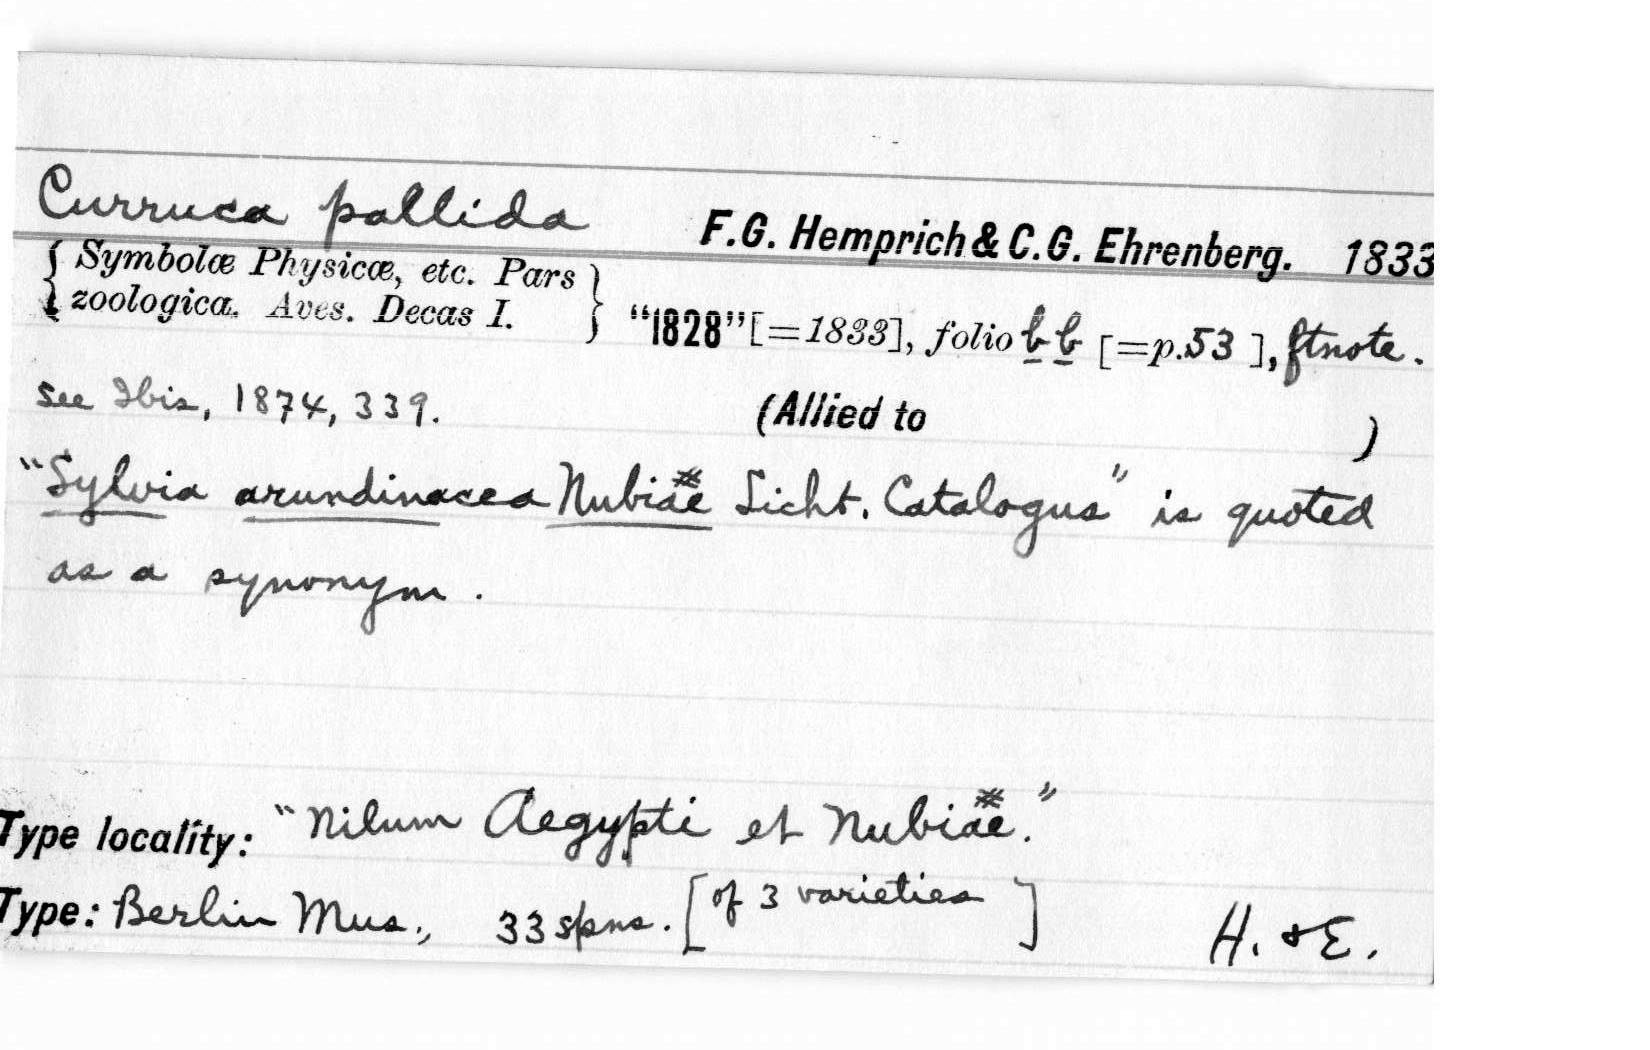 Curruca pallida F.G. Hemprich & C.G. Ehrenberg. 1833
{ Symbolæ Physicæ, etc. Pars
zoologica. Aves. Decas I. } "1828" [=1833], folio bb [=p.53 ], ftnote.
see Ibis, 1874, 339. (Allied to )
"Sylvia arundinacea Nubiae Licht. Catalogus" is quoted
as a synonym.
Type locality: "Nilum Aegypti et Nubiae."
Type: Berlin Mus., 33 spns. [of 3 varieties ] H. & E.